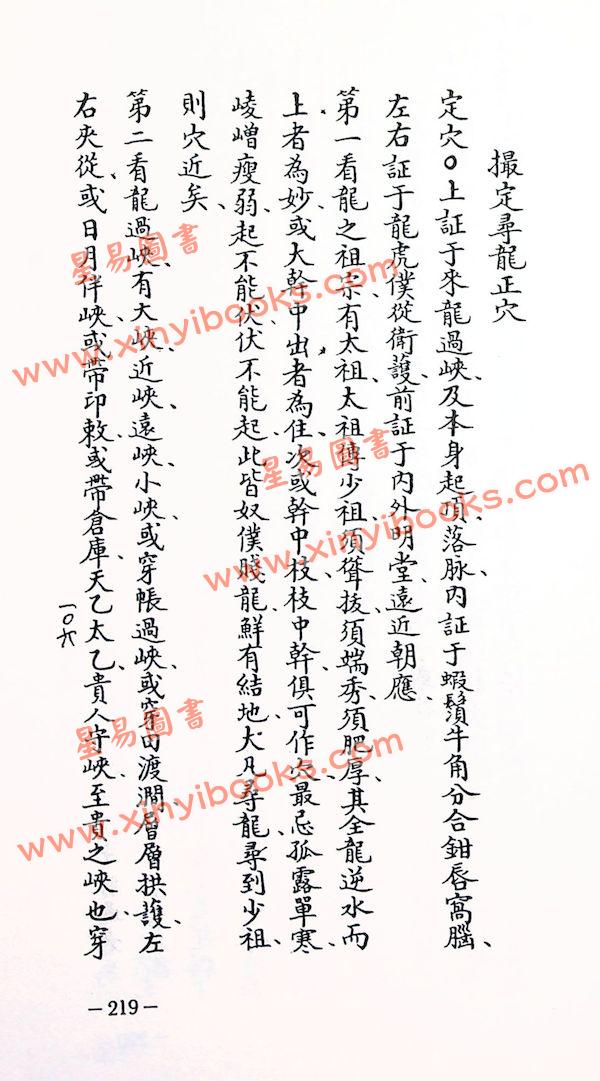 撮定尋龍正穴
定穴○上証于來龍過峽、及本身起頂、落脉、內証于蝦鬚牛角分合鉗唇窩腦、
左右証于龍虎僕從衛護、前証于內外明堂、遠近朝應、
第一看龍之祖宗、有太祖、太祖傳少祖、須聳拔、須端秀、須肥厚、其全龍逆水而
上者為妙、或大幹中出者為佳、次或幹中枝、枝中幹、俱可作穴、最忌孤露單寒、
崚嶒瘦弱、起不能伏、伏不能起、此皆奴僕賤龍、鮮有結地、大凡尋龍、尋到少祖、
則穴近矣、
第二看龍過峽、有大峽、近峽、遠峽、小峽、或穿帳過峽、或穿田渡澗、層層拱護、左
右夾從、或日月伴峽、或帶印敕、或帶倉庫、天乙太乙、貴人守峽、至貴之峽也、穿
一○六
-219-
星易圖書
www.xinyibooks.com
星易圖書
www.xinyibooks.com
星易圖書
www.xinyibooks.com